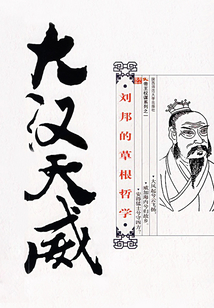 大汉天威
刘邦的草根哲学
帝王权谋系列之一
大风起兮云飞扬
威加海内兮归故乡
安得猛士兮守四方